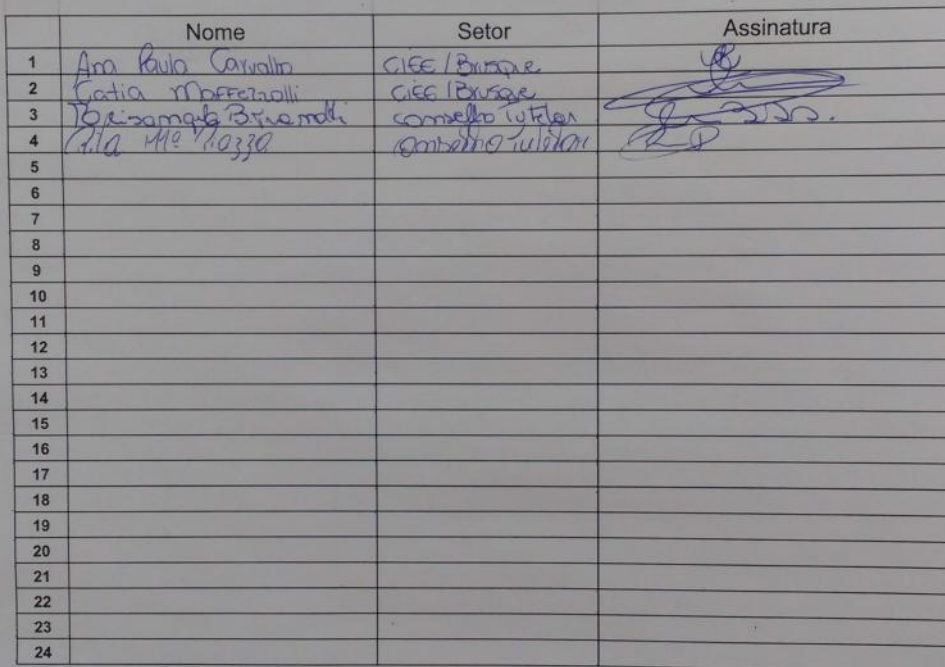 Nome Setor Assinatura
1 Ana Paula Carvalho CIEE/Brusque
2 Catia Maffezzolli CIEE/Brusque
3 Conselho Tutelar
4 Conselho Tutelar
5
6
7
8
9
10
11
12
13
14
15
16
17
18
19
20
21
22
23
24